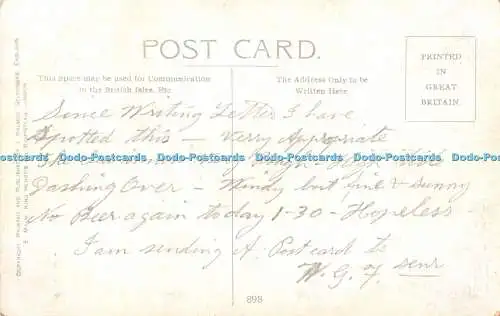 POST CARD.
This Space may be used for Communication
in the British Isles, Etc
The Address Only to be
Written Here
PRINTED
IN
GREAT
BRITAIN.
Since Writing Letter I have
Spotted this — Very Appropriate
Dodo-Postcards Dodo-Postcards Dodo-Postcards Dodo-Postcards Dodo-Postcards
Dashing Over — Windy but fine & Sunny
No Beer again today 1-30 - Hopeless
I am sending A Postcard to
W. G. F. Senr
898